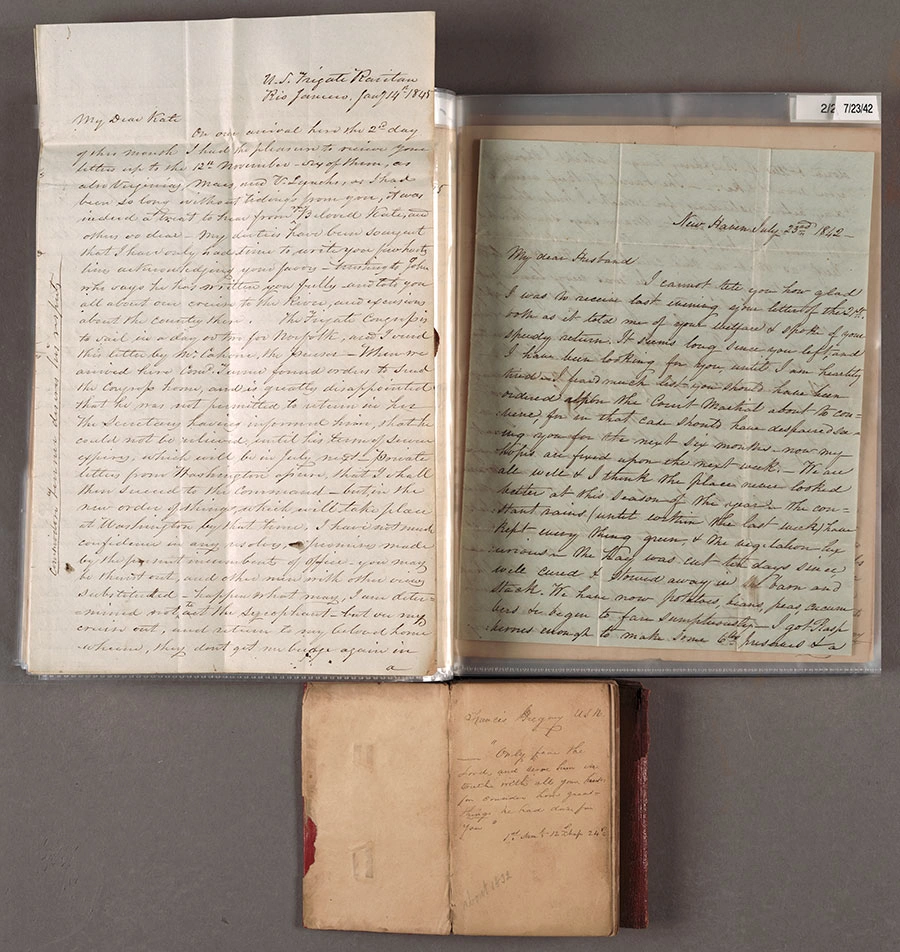 U.S. Frigate Raritan
Rio Janeiro, Jany 14th 1845
My Dear Kate
On our arrival here the 2d day
of this month I had the pleasure to receive your
letters up to the 12th November – six of them, as
also Virginia's, Mary's, and V. Lynch's, as I had
been so long without tidings from you, it was
indeed a treat to hear from Beloved Kate, and
others so dear – My duties have been so urgent
that I have only had time to write you few
lines acknowledging your favors –
who says he has written you fully and tells you
all about our cruise to the River, and excursions
about the country there. The Frigate Congress is
to sail in a day or two for Norfolk, and I send
this letter by Mr. the Purser – When we
arrived here Como. Turner found orders to send
the Congress home, and is greatly disappointed
that he was not permitted to return in her
the Secretary having informed him, that he
could not be relieved, until his term of service
expires, which will be in July next – Private
letters from Washington that I shall
then succeed to the Command – but in the
new order of things which will take place
at Washington by that time, I have not much
confidence in any promises made
by the present incumbents of office you may
be thrust out, and other men with other views
substituted – happen what may, I am deter-
mined not to act the sycophant – but
cruise out, and return to my beloved home
wherein, they don't get me again in
a
Commodore Turner desires his respects
2/2 7/23/42
New Haven July 23rd 1842
My dear Husband
I cannot tell you how glad
I was to receive last evening your letter of the 21st,
both as it told me of your welfare & spoke of your
speedy return. It seems long since you left, and
I have been looking for you until I am heartily
tired – I feared much lest you should have been
ordered upon the Court Martial about to con-
vene for in that case should have despaired se-
ing you for the next six months – now my
hopes are fixed upon the next week. – We are
all well & I think the place never looked
better at this season of the year – the con-
stant rains (until within the last week) have
kept every thing green, & the vegetation lux
urious – the Hay was cut ten days since
well cured & stowed away in the barn and
stack. We have now potatoes, beans, peas cucum
bers & begin to fare sumptuously – I got Rasp
berries enough to make some 6 lbs preserves & a
Francis Gregory U.S.N.
"Only fear the
Lord, and serve him in
truth with all your heart
for consider how great
things he had done for
you"
1st Sam'l 12th Chap 24
about 1832